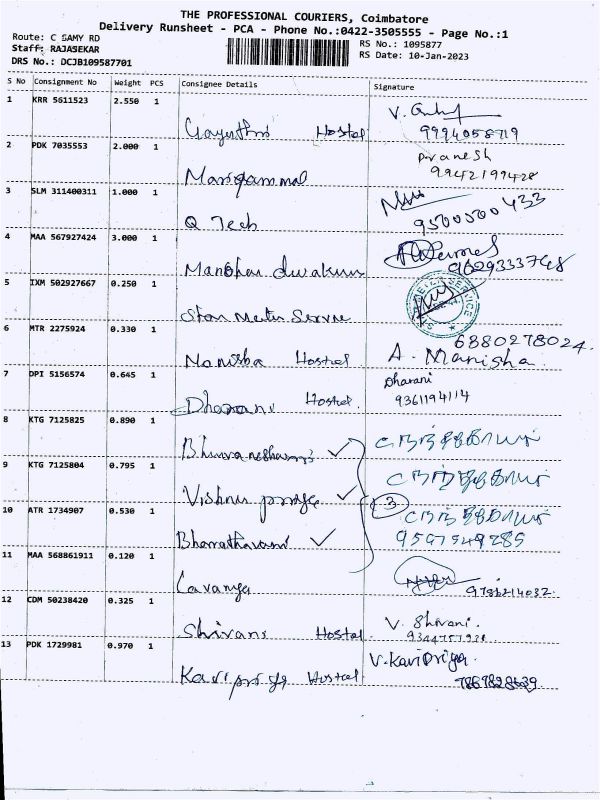 THE PROFESSIONAL COURIERS, Coimbatore
Delivery Runsheet - PCA - Phone No.:0422-3505555 - Page No.:1
Route: C SAMY RD
Staff: RAJASEKAR
DRS No.: DCJB109587701
RS No.: 1095877
RS Date: 10-Jan-2023
S No Consignment No Weight PCS Consignee Details Signature
1 KRR 5611523 2.550 1
Gayathri Hostel
2 PDK 7035553 2.000 1 Pranesh
Mariyammal 9942199428
3 SLM 311400311 1.000 1
Q Tech 9500500433
4 MAA 567927424 3.000 1
Manohar 9629333748
5 IXM 502927667 0.250 1
Star Meter Service
6 MTR 2275924 0.330 1 6880278024
Manisha Hostel A. Manisha
7 DPI 5156574 0.645 1 Dharani
Dharani Hostel 9361194114
8 KTG 7125825 0.890 1
Bhuvaneshwari
9 KTG 7125804 0.795 1
Vishnu priya
10 ATR 1734907 0.530 1 3
Bharatharani 9597549285
11 MAA 568861911 0.120 1
Lavanya
12 CDM 50238420 0.325 1 V. Shivani.
Shivani Hostel
13 PDK 1729981 0.970 1 V. KaviPriya.
Kavipriya Hostel